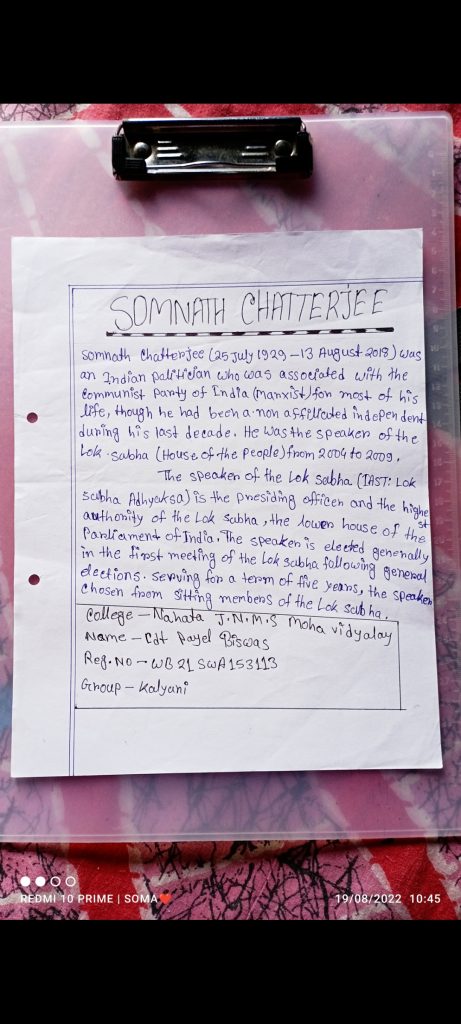 SOMNATH CHATTERJEE
Somnath Chatterjee (25 July 1929 – 13 August 2018) was
an Indian palitician who was associated with the
Communist Party of India (Marxist) for most of his
life, though he had been a non affilicated independent
during his last decade. He was the speaker of the
Lok Sabha (House of the People) from 2004 to 2009.
The speaker of the Lok Sabha (IAST: Lok
sabha Adhyaksa) is the presiding officer and the highe
st
authority of the Lok Sabha, the lower house of the
Parliament of India. The speaker is elected generally
in the first meeting of the Lok sabha following general
elections. Serving for a term of five years, the speaker
chosen from sitting members of the Lok sabha.
College – Nahata J.N.M.S Moha vidyalay
Name – Cdt Payel Biswas
Reg. No – WB 21 SWA153113
Group – Kalyani
REDMI 10 PRIME | SOMA❤️
19/08/2022 10:45